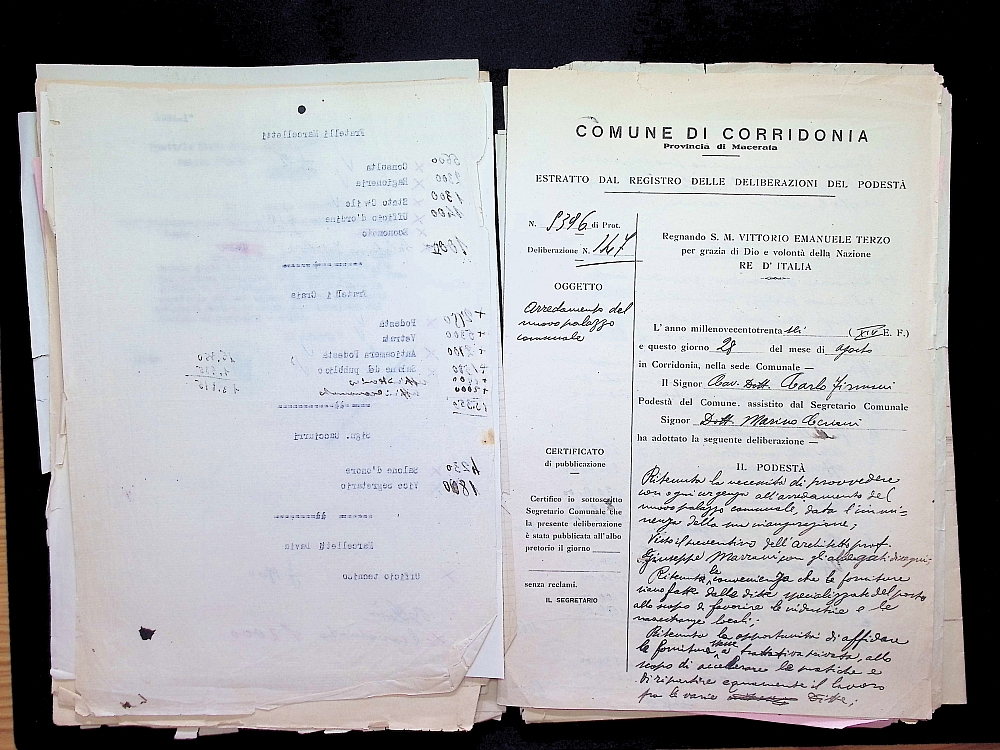 Fratelli Marcelletti
Consulta 5600
Ragioneria 2300
Stato Civile 1300
Ufficio d'ordine 1400
Economato 1800
Fratelli Craia
Podestà
Vetrata 5300
Anticamera Podestà 2100
Salone del pubblico
+2000
Sign. Cucciarri
Salone d'onore 4230
Vice segretario 1800
Marcelletti Lavio
Ufficio tecnico
COMUNE DI CORRIDONIA
Provincia di Macerata
ESTRATTO DAL REGISTRO DELLE DELIBERAZIONI DEL PODESTÀ
N. 5396 di Prot.
Deliberazione N. 147
OGGETTO
Arredamento del
nuovo palazzo
comunale
CERTIFICATO
di pubblicazione
Certifico io sottoscritto
Segretario Comunale che
la presente deliberazione
è stata pubblicata all'albo
pretorio il giorno
senza reclami.
IL SEGRETARIO
Regnando S. M. VITTORIO EMANUELE TERZO
per grazia di Dio e volontà della Nazione
RE D'ITALIA
L'anno millenovecentotrenta sei (XIV E. F.)
e questo giorno 28 del mese di agosto
in Corridonia, nella sede Comunale —
Il Signor Cav. Dott. Carlo Firmani
Podestà del Comune, assistito dal Segretario Comunale
Signor Dott. Marino
ha adottato la seguente deliberazione —
IL PODESTÀ
Ritenuta la necessità di provvedere
con ogni urgenza all'arredamento del
nuovo palazzo comunale, data l'immi-
nenza della sua inaugurazione;
Visto il preventivo dell'architetto prof.
Giuseppe Marrani con gli allegati disegni;
Ritenuta la convenienza che le forniture
siano fatte dalle ditte specializzate del posto
allo scopo di favorire le industrie e le
maestranze locali;
Ritenuta la opportunità di affidare
le forniture stesse a trattativa privata, allo
scopo di accellerare le pratiche e
di ripartire equamente il lavoro
fra le varie Ditte;